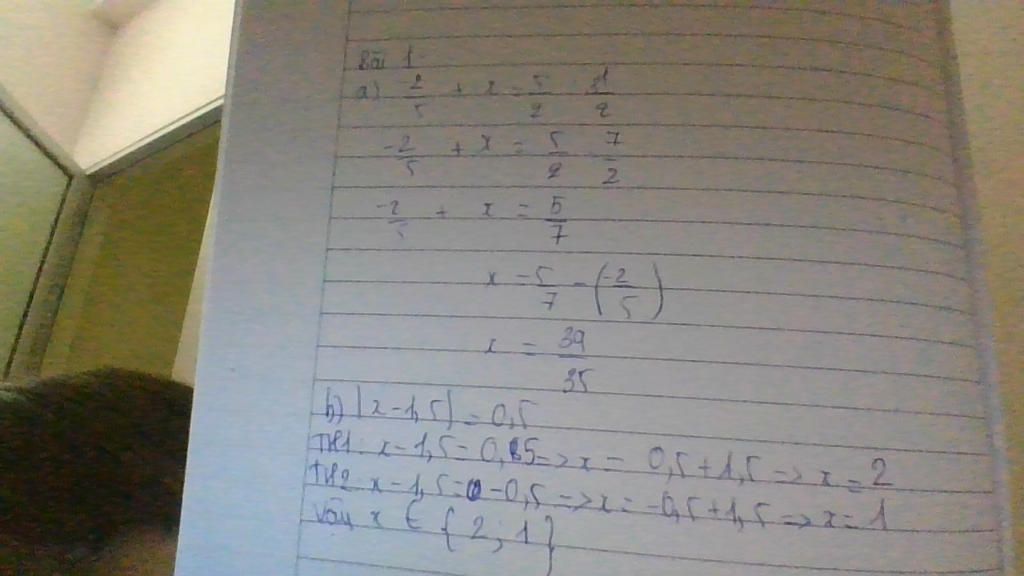 Bài 1
a) 2/5 + x = 5/2
-2/5 + x = 5/2 7/2
-2/5 + x = 5/7
x = 5/7 - (-2/5)
x = 39/35
b) |x-1,5| = 0,5
TH1: x-1,5=0,5=>x= 0,5+1,5=>x=2
TH2: x-1,5= -0,5=>x= -0,5+1,5=>x=1
Vậy x ∈ {2; 1}